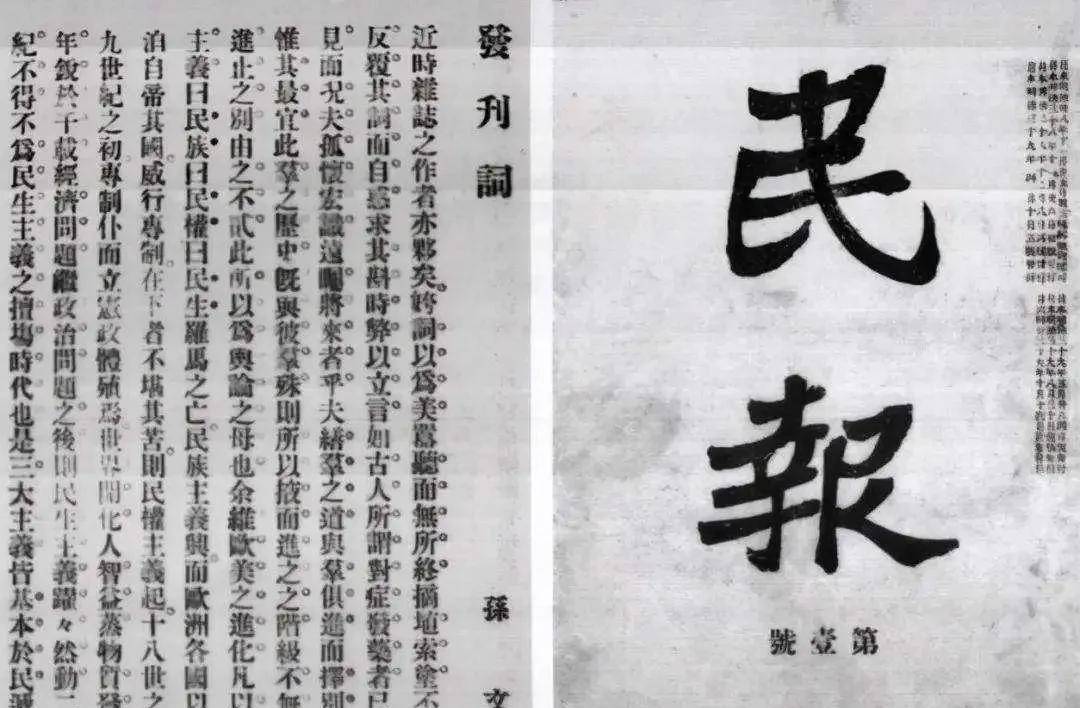 民報
第壹號
發刊詞
孫文
近時雜誌之作者亦夥矣姱詞以爲美囂聽而無所終摘埴索塗不
反覆其詞而自惑求其斟時弊以立言如古人所謂對症發藥者已
見而况夫孤懷宏識遠矚將來者乎夫繕羣之道與羣俱進而擇別
惟其最宜此羣之歷史旣與彼羣殊則所以掖而進之之階級不無
進止之別由之不貳此所以爲輿論之母也余維歐美之進化凡以
主義曰民族曰民權曰民生羅馬之亡民族主義興而歐洲各國以
洎自帝其國威行專制在下者不堪其苦則民權主義起十八世之
九世紀之初專制仆而立憲政體殖焉世界開化人智益蒸物質發
年銳於千載經濟問題繼政治問題之後則民生主義躍々然動二
紀不得不爲民生主義之擅塲時代也是三大主義皆基本於民